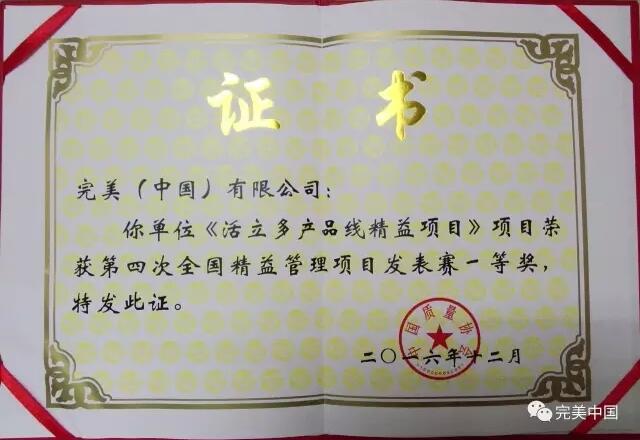 证 书
完美（中国）有限公司：
你单位《活立多产品线精益项目》项目荣
获第四次全国精益管理项目发表赛一等奖，
特发此证。
中国质量协会
二〇一六年十二月
完美中国